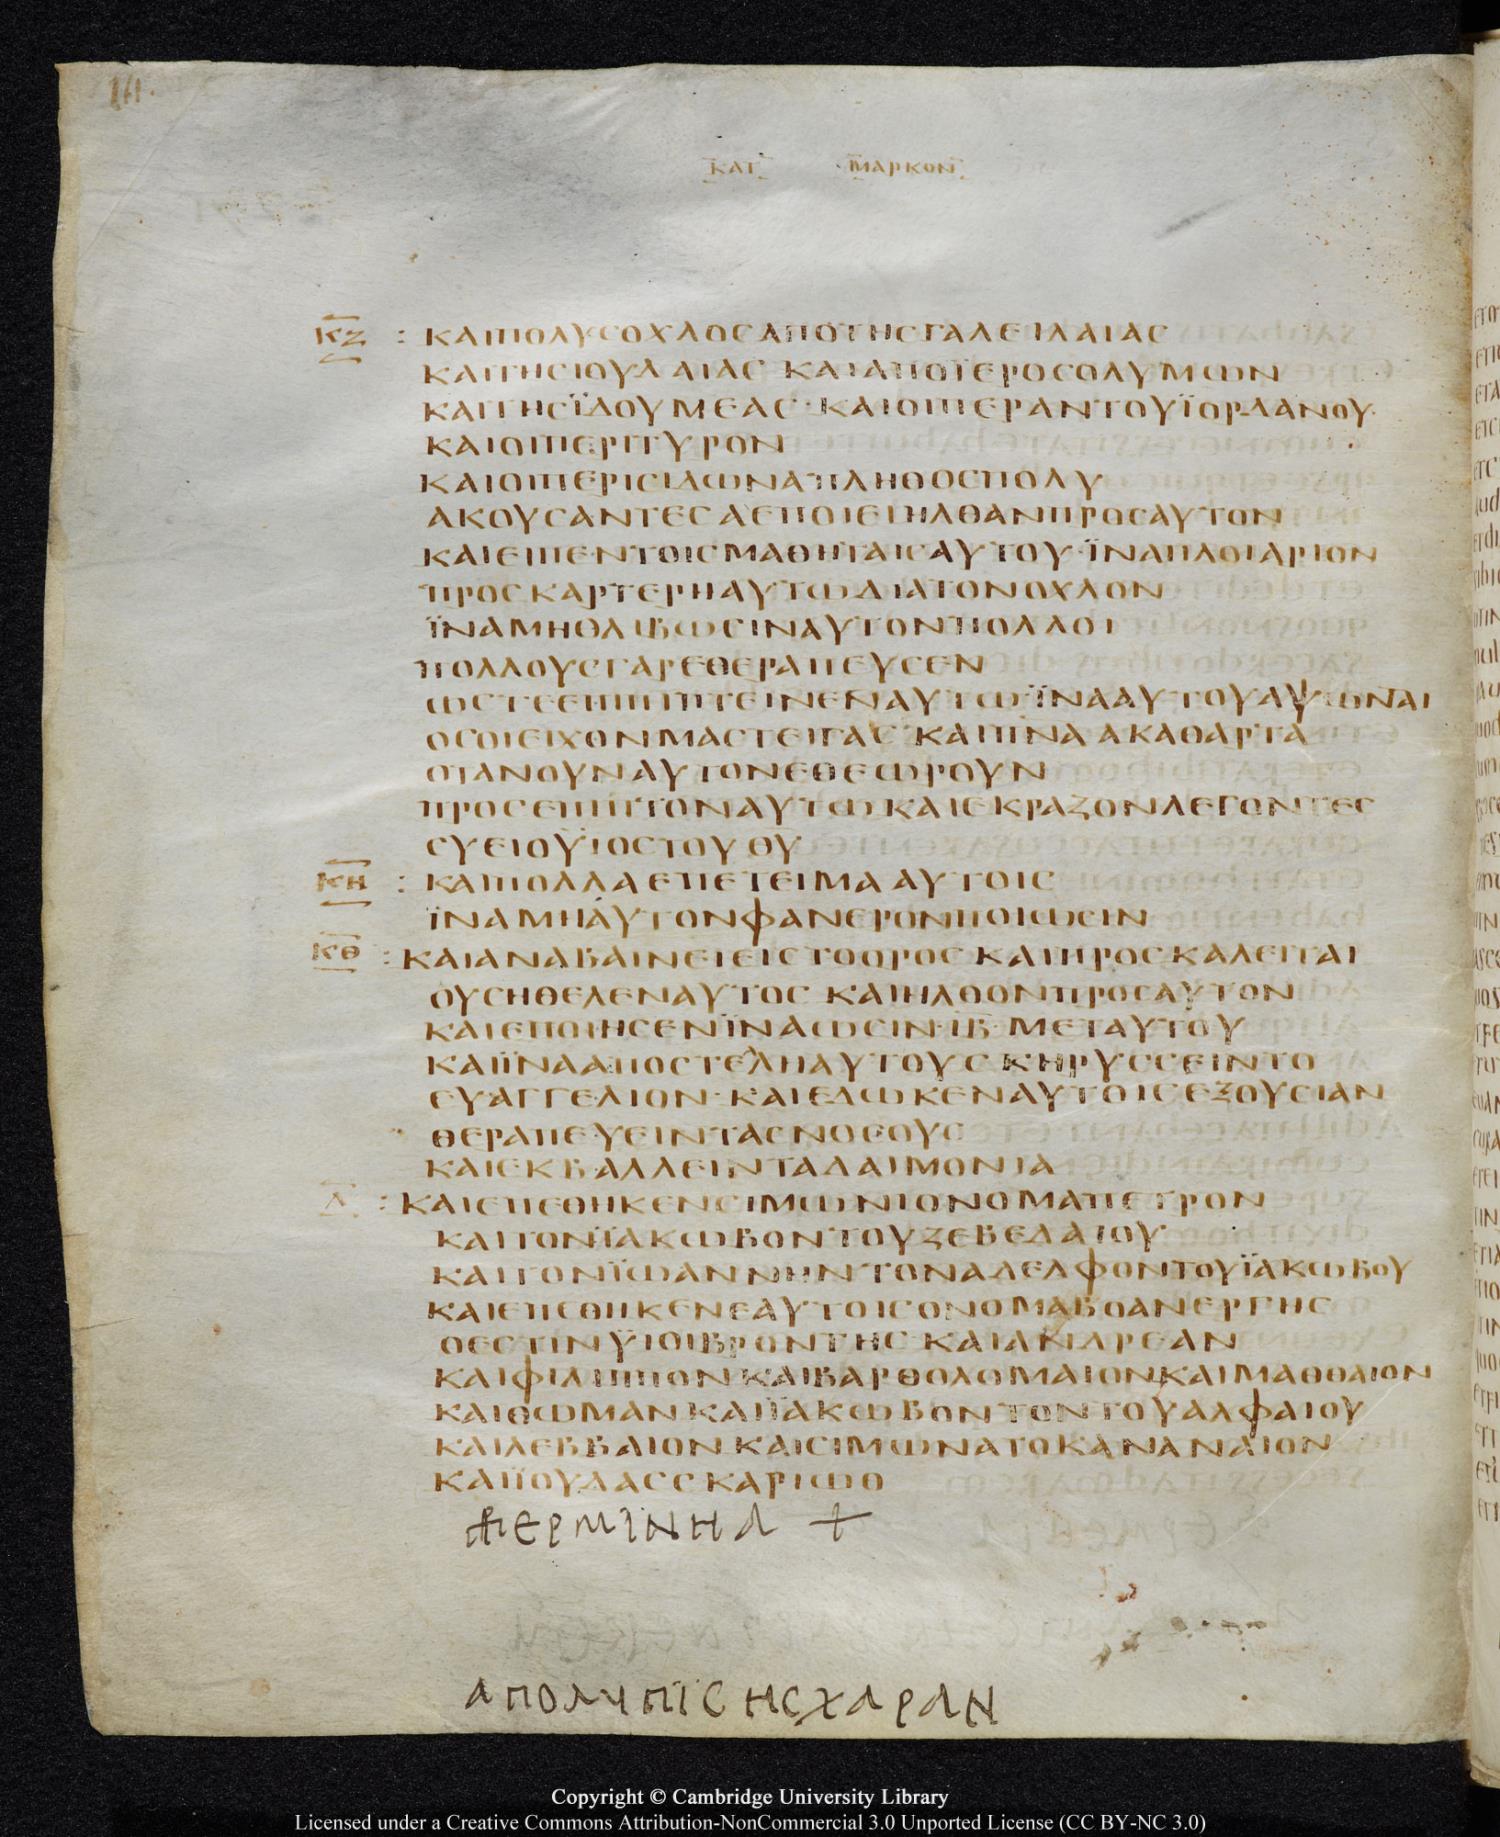 ΚΑΤ ΜΑΡΚΟΝ
ΚΖ : ΚΑΙΠΟΛΥΣΟΧΛΟΣΑΠΟΤΗΣΓΑΛΕΙΛΑΙΑΣ
ΚΑΙΤΗΣΙΟΥΔΑΙΑΣ ΚΑΙΑΠΟΪΕΡΟΣΟΛΥΜΩΝ
ΚΑΙΤΗΣΪΔΟΥΜΕΑΣ·ΚΑΙΟΙΠΕΡΑΝΤΟΥΪΟΡΔΑΝΟΥ
ΚΑΙΟΙΠΕΡΙΤΥΡΟΝ
ΚΑΙΟΙΠΕΡΙΣΙΔΩΝΑΠΛΗΘΟΣΠΟΛΥ
ΑΚΟΥΣΑΝΤΕΣΑΕΠΟΙΕΙΗΛΘΑΝΠΡΟΣΑΥΤΟΝ
ΚΑΙΕΙΠΕΝΤΟΙΣΜΑΘΗΤΑΙΣΑΥΤΟΥ·ΪΝΑΠΛΟΙΑΡΙΟΝ
ΠΡΟΣΚΑΡΤΕΡΗΑΥΤΩΔΙΑΤΟΝΟΧΛΟΝ
ΪΝΑΜΗΘΛΙΒΩΣΙΝΑΥΤΟΝΠΟΛΛΟΙ
ΠΟΛΛΟΥΣΓΑΡΕΘΕΡΑΠΕΥΣΕΝ
ΩΣΤΕΕΠΙΠΙΠΤΕΙΝΕΝΑΥΤΩ·ΪΝΑΑΥΤΟΥΑΨΩΝΑΙ
ΟΣΟΙΕΙΧΟΝΜΑΣΤΕΙΓΑΣ ΚΑΙΠΝΑ ΑΚΑΘΑΡΤΑ
ΟΤΑΝΟΥΝΑΥΤΟΝΕΘΕΩΡΟΥΝ
ΠΡΟΣΕΠΙΠΤΟΝΑΥΤΩΚΑΙΕΚΡΑΖΟΝΛΕΓΟΝΤΕΣ
ΣΥΕΙΟΫΙΟΣΤΟΥΘΥ
ΚΗ : ΚΑΙΠΟΛΛΑΕΠΕΤΕΙΜΑΑΥΤΟΙΣ
ΪΝΑΜΗΑΥΤΟΝΦΑΝΕΡΟΝΠΟΙΩΣΙΝ
ΚΘ : ΚΑΙΑΝΑΒΑΙΝΕΙΕΙΣΤΟΟΡΟΣ ΚΑΙΠΡΟΣΚΑΛΕΙΤΑΙ
ΟΥΣΗΘΕΛΕΝΑΥΤΟΣ ΚΑΙΗΛΘΟΝΠΡΟΣΑΥΤΟΝ
ΚΑΙΕΠΟΙΗΣΕΝΪΝΑΩΣΙΝ·ΙΒ·ΜΕΤΑΥΤΟΥ
ΚΑΙΪΝΑΑΠΟΣΤΕΛΗΑΥΤΟΥΣΚΗΡΥΣΣΕΙΝΤΟ
ΕΥΑΓΓΕΛΙΟΝ·ΚΑΙΕΔΩΚΕΝΑΥΤΟΙΣΕΞΟΥΣΙΑΝ
ΘΕΡΑΠΕΥΕΙΝΤΑΣΝΟΣΟΥΣ
ΚΑΙΕΚΒΑΛΛΕΙΝΤΑΔΑΙΜΟΝΙΑ
Λ : ΚΑΙΕΠΕΘΗΚΕΝΣΙΜΩΝΙΟΝΟΜΑΠΕΤΡΟΝ
ΚΑΙΤΟΝΪΑΚΩΒΟΝΤΟΥΖΕΒΕΔΑΙΟΥ
ΚΑΙΤΟΝΪΩΑΝΝΗΝΤΟΝΑΔΕΛΦΟΝΤΟΥΪΑΚΩΒΟΥ
ΚΑΙΕΠΕΘΗΚΕΝΕΑΥΤΟΙΣΟΝΟΜΑΒΟΑΝΕΡΓΗΣ
ΟΕΣΤΙΝΫΙΟΙΒΡΟΝΤΗΣ·ΚΑΙΑΝΔΡΕΑΝ
ΚΑΙΦΙΛΙΠΠΟΝΚΑΙΒΑΡΘΟΛΟΜΑΙΟΝΚΑΙΜΑΘΘΑΙΟΝ
ΚΑΙΘΩΜΑΝΚΑΙΪΑΚΩΒΟΝΤΟΝΤΟΥΑΛΦΑΙΟΥ
ΚΑΙΛΕΒΒΑΙΟΝ ΚΑΙΣΙΜΩΝΑΤΟΚΑΝΑΝΑΙΟΝ
ΚΑΙΪΟΥΔΑΣΣΚΑΡΙΩΘ
ΕΡΜΙΝΗΑ +
ΑΠΟΛΥΠΙΣΗΣΧΑΡΑΝ
Copyright © Cambridge University Library
Licensed under a Creative Commons Attribution-NonCommercial 3.0 Unported License (CC BY-NC 3.0)